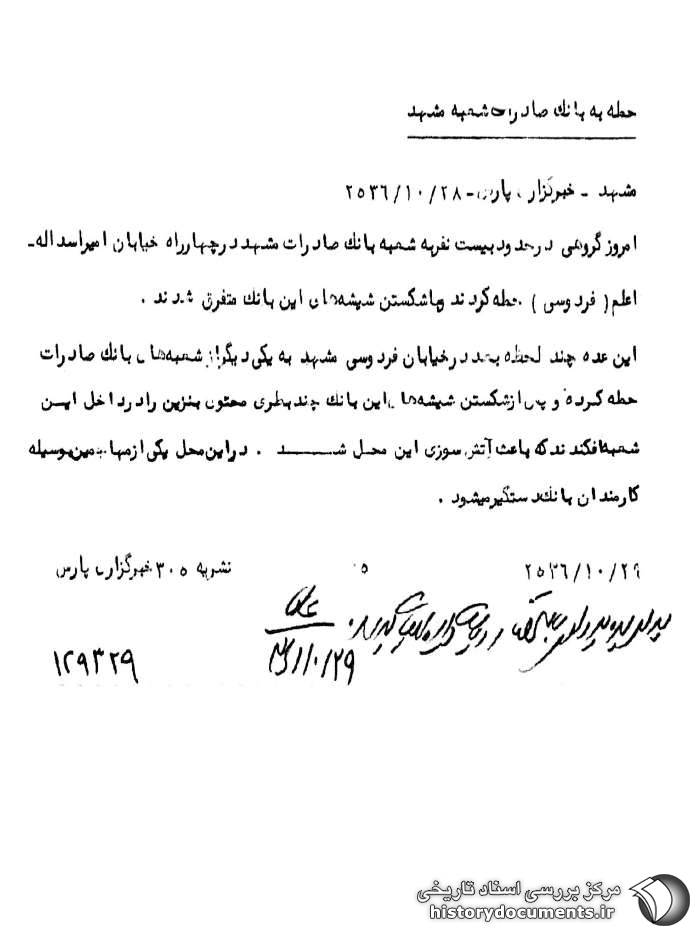 حمله به بانك صادرات شعبه مشهد
مشهد - خبرگزاری پارس - ۲۵۳۶/۱۰/۲۸
امروز گروهی در حدود بیست نفر به شعبه بانك صادرات مشهد در چهارراه خیابان امیر اسداله -
اعلم ( فردوسی ) حمله کردند و با شکستن شیشه‌های این بانك متفرق شدند .
این عده چند لحظه بعد در خیابان فردوسی مشهد به یکی دیگر از شعبه‌های بانك صادرات
حمله کرده و پس از شکستن شیشه‌های این بانك چند بطری محتوی بنزین را در داخل ایـن
شعبه افکندند که باعث آتش سوزی این محـل شـــد . در این محل یکی از مهاجمین بوسیله
کارمندان بانك دستگیر میشود .
۲۵۳۶/۱۰/۲۹ ۵ نشریه ۳۰۵ خبرگزاری پارس
۳۶/۱۰/۲۹
۱۲۹۳۲۹
مرکز بررسی اسناد تاریخی
historydocuments.ir